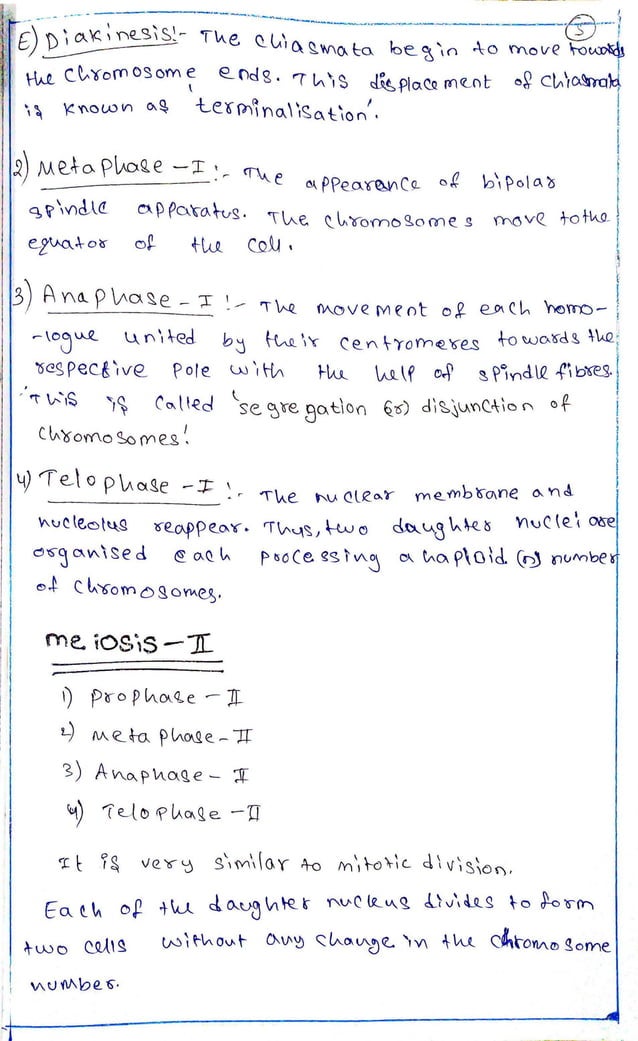 5
E) Diakinesis:- The chiasmata begin to move towards
the Chromosome ends. This displacement of chiasmata
is known as 'terminalisation'.
2) Metaphase-I :- The appearance of bipolar
spindle apparatus. The chromosomes move to the
equator of the cell.
3) Anaphase-I :- The movement of each homo-
-logue united by their centromeres towards the
respective pole with the help of spindle fibres.
'This is called 'segregation (or) disjunction of
chromosomes'.
4) Telophase-I :- The nuclear membrane and
nucleolus reappear. Thus, two daughter nuclei are
organised each processing a haploid (n) number
of chromosomes.
meiosis-II
1) Prophase-II
2) Metaphase-II
3) Anaphase-II
4) Telophase-II
It is very similar to mitotic division.
Each of the daughter nucleus divides to form
two cells without any change in the chromosome
number.